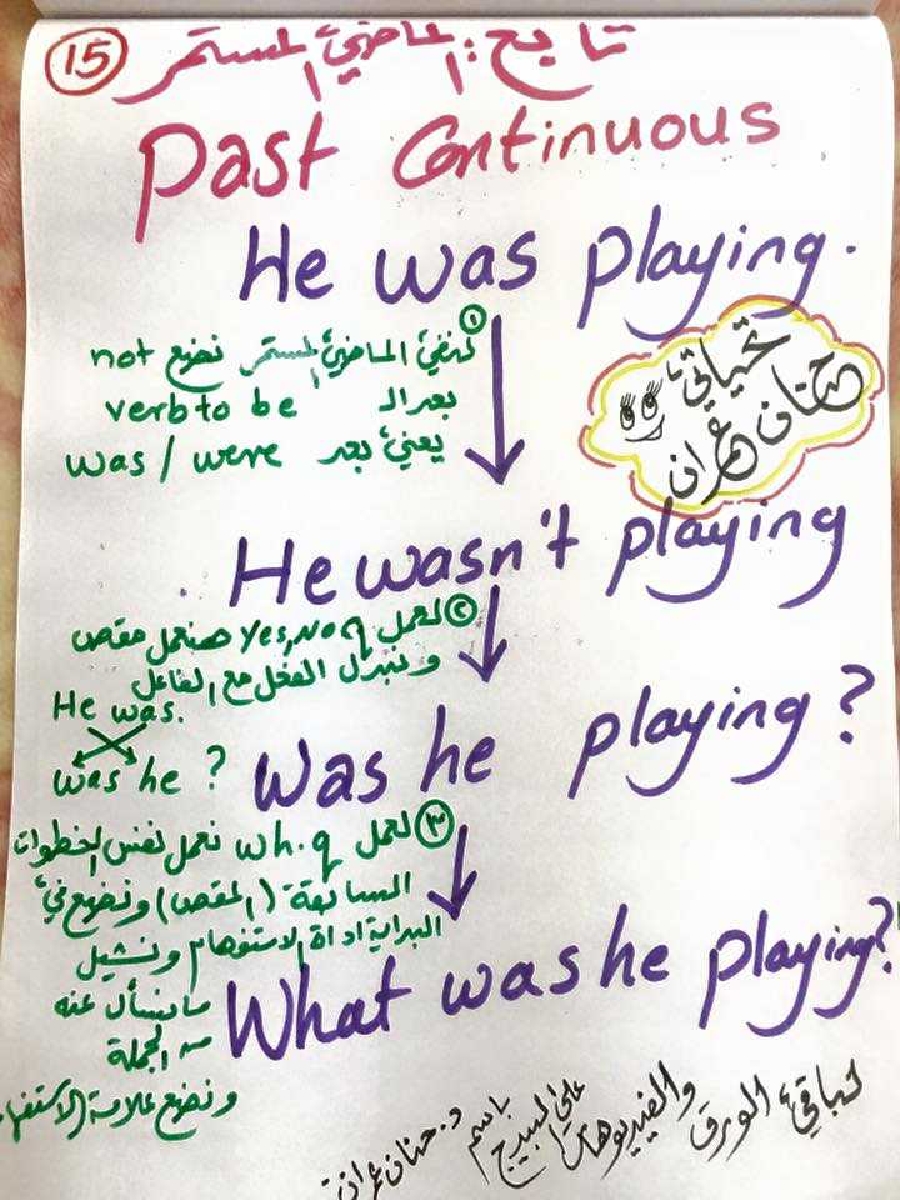 15 تابع: الماضي المستمر
Past Continuous
He was playing.
① لنفي الماضي المستمر نضع not
بعد الـ verb to be
يعني بعد was / were
تحياتي
حنان
He wasn't playing
② لعمل Yes, No q هنعمل مقص
ونبدل الفعل مع الفاعل
He was.
was he ?
Was he playing ?
③ لعمل wh.q نعمل نفس الخطوات
السابقة (المقص) ونضع في
البداية اداة الاستفهام ونشيل
ما نسأل عنه
من الجملة
ونضع علامة الاستفهام
What was he playing?
لباقي الورق والفيديوهات
علي البيدج باسم
د. حنان